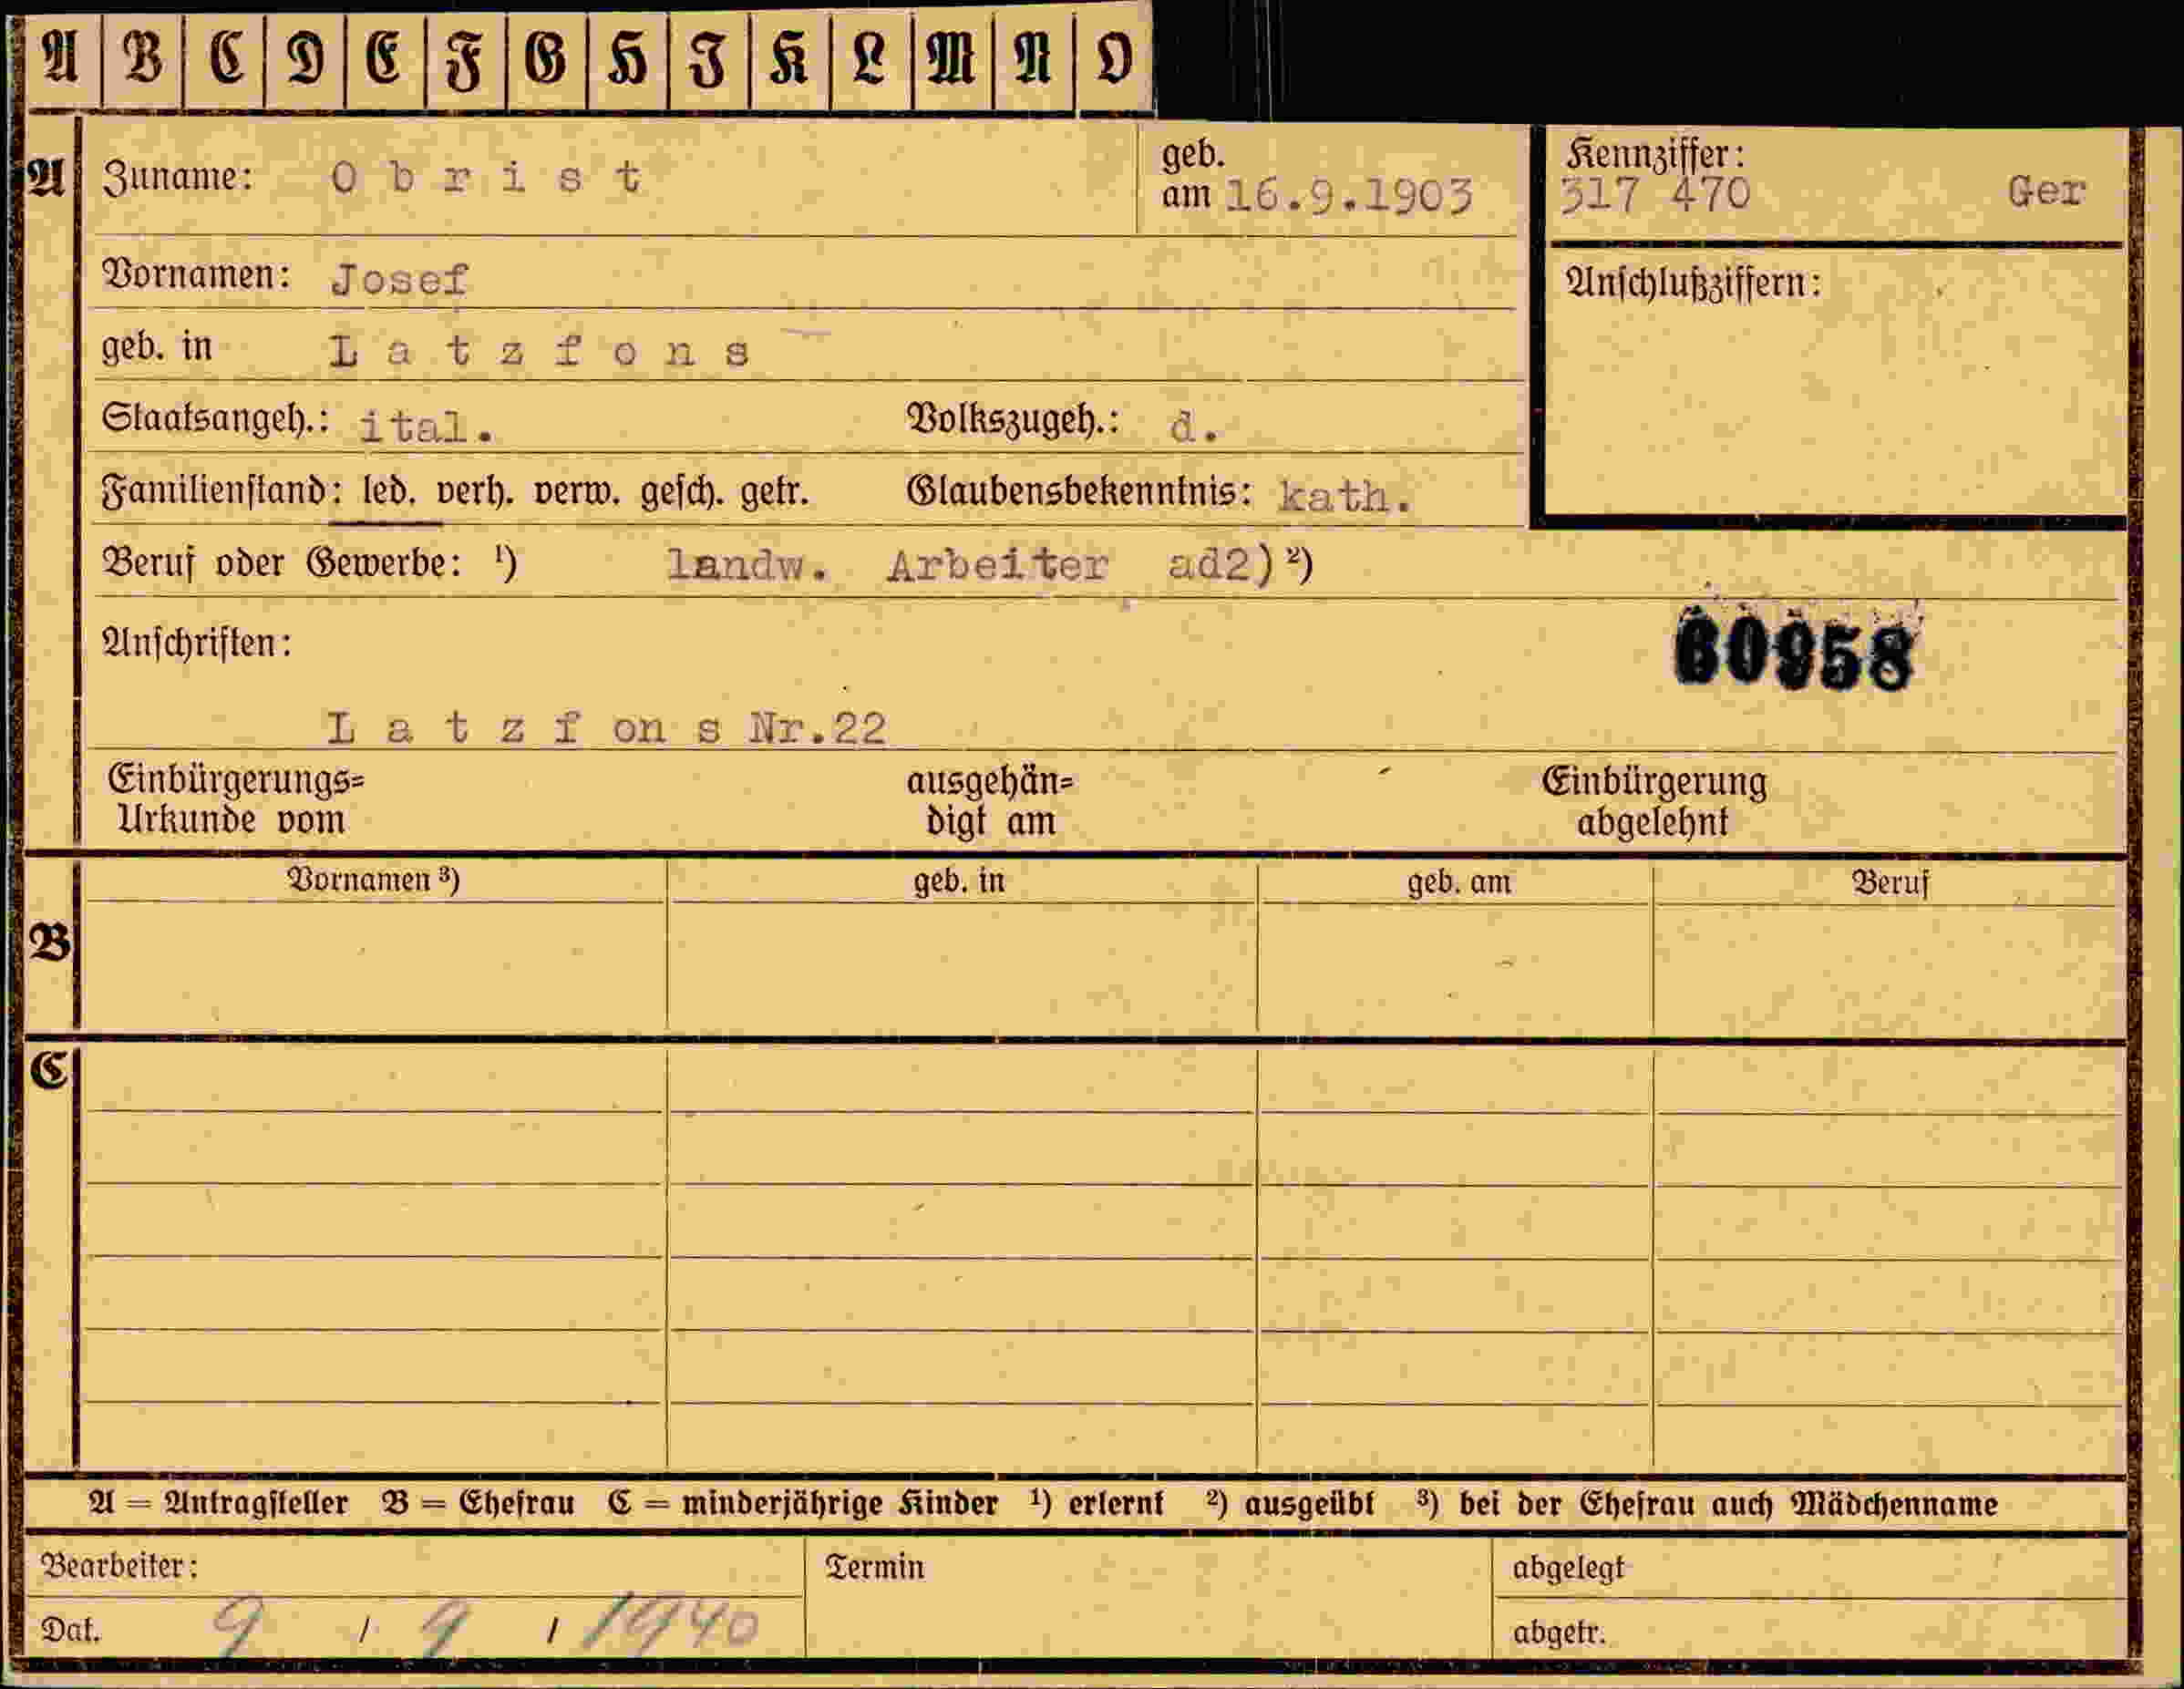 A B C D E F G H I K L M N O
A Zuname: Obrist geb. am 16.9.1903 Kennziffer: 317 470 Ger
Vornamen: Josef Anschlußziffern:
geb. in Latzfons
Staatsangeh.: ital. Volkszugeh.: d.
Familienstand: led. verh. verw. gesch. getr. Glaubensbekenntnis: kath.
Beruf oder Gewerbe: ¹) landw. Arbeiter ad2) ²)
Anschriften: 60958
Latzfons Nr.22
Einbürgerungs= ausgehän= Einbürgerung
Urkunde vom digt am abgelehnt
Vornamen ³) geb. in geb. am Beruf
B
C
A = Antragsteller B = Ehefrau C = minderjährige Kinder ¹) erlernt ²) ausgeübt ³) bei der Ehefrau auch Mädchenname
Bearbeiter: Termin abgelegt
Dat. 9 / 9 / 1940 abgetr.